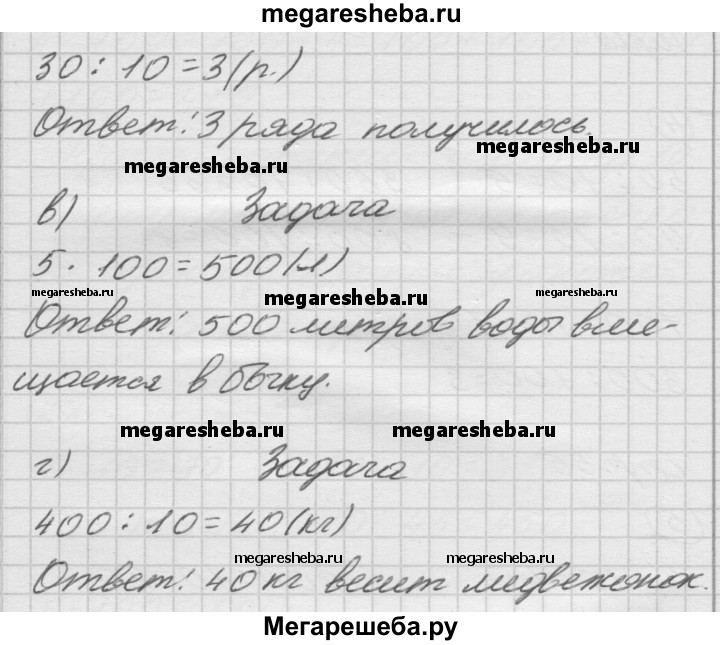 megaresheba.ru
30 : 10 = 3 (р.)
Ответ: 3 ряда получилось.
megaresheba.ru
megaresheba.ru
в) Задача
5 · 100 = 500 (л)
megaresheba.ru
megaresheba.ru
megaresheba.ru
Ответ: 500 литров воды вме-
щается в бочку.
megaresheba.ru
megaresheba.ru
г) Задача
400 : 10 = 40 (кг)
megaresheba.ru
megaresheba.ru
Ответ: 40 кг весит медвежонок.
Мегарешеба.ру